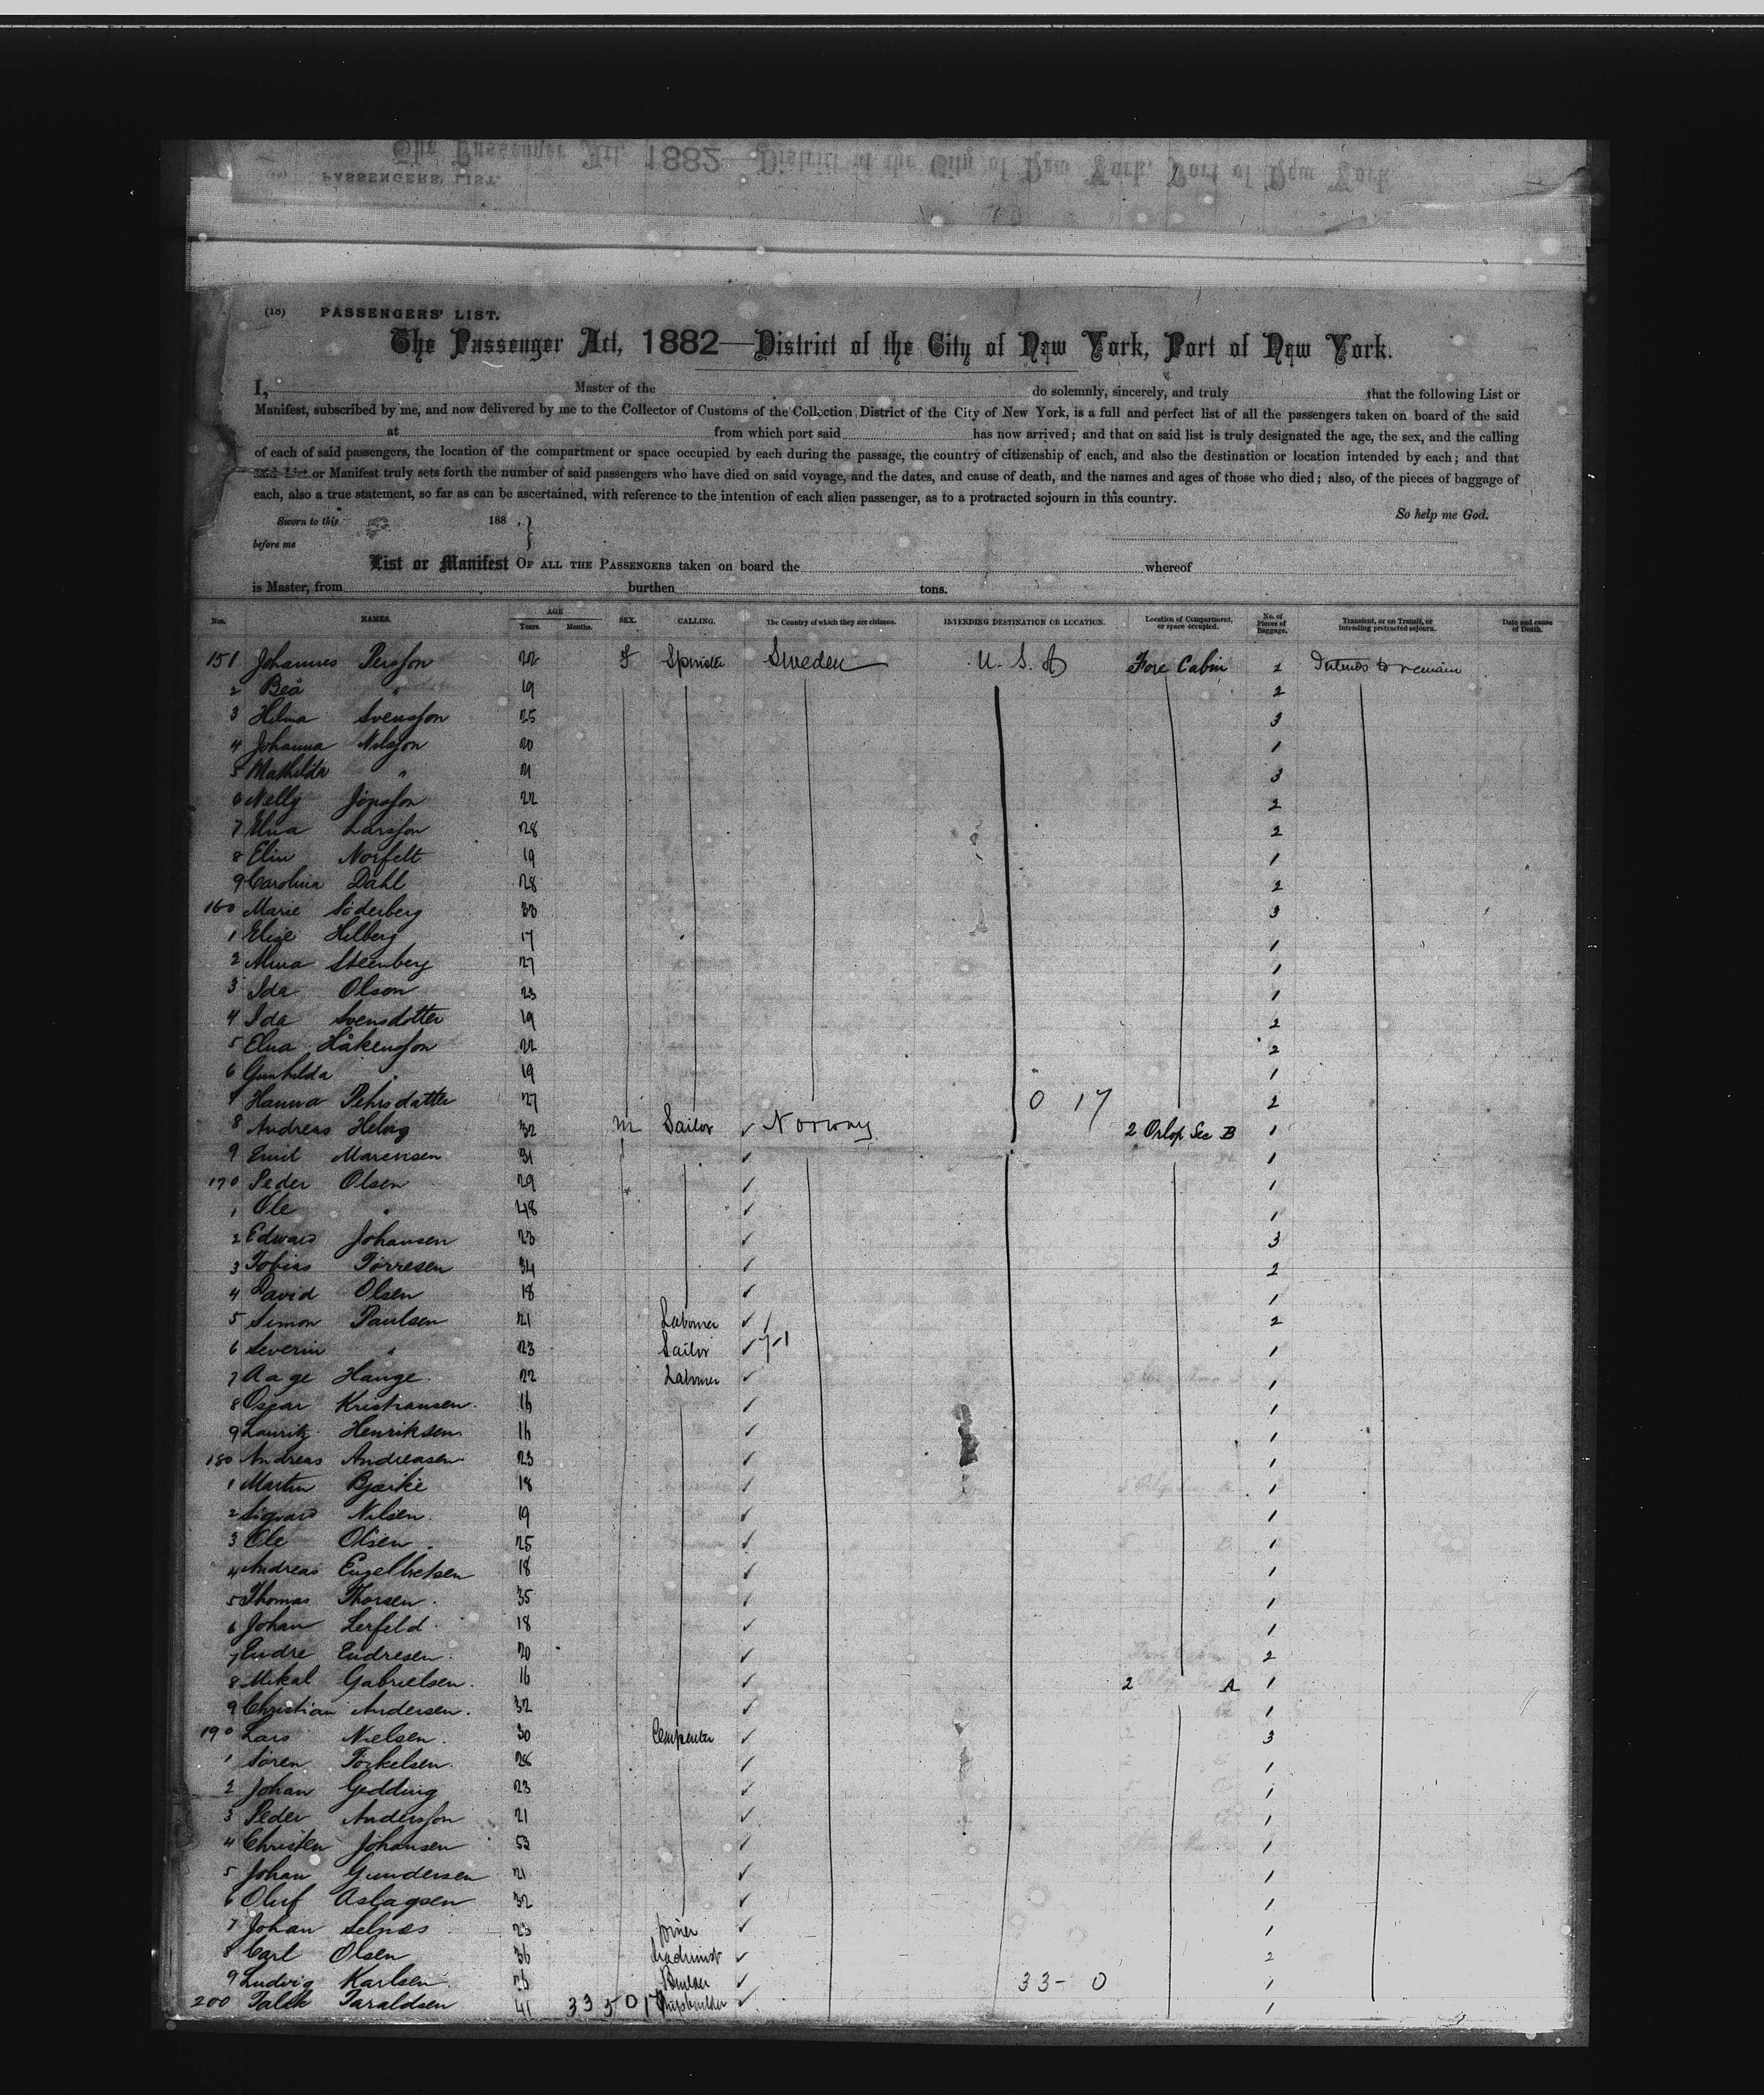 (18) PASSENGERS' LIST.
The Passenger Act, 1882—District of the City of New York, Port of New York.
I, Master of the do solemnly, sincerely, and truly that the following List or
Manifest, subscribed by me, and now delivered by me to the Collector of Customs of the Collection District of the City of New York, is a full and perfect list of all the passengers taken on board of the said
at from which port said has now arrived; and that on said list is truly designated the age, the sex, and the calling
of each of said passengers, the location of the compartment or space occupied by each during the passage, the country of citizenship of each, and also the destination or location intended by each; and that
said List or Manifest truly sets forth the number of said passengers who have died on said voyage, and the dates, and cause of death, and the names and ages of those who died; also, of the pieces of baggage of
each, also a true statement, so far as can be ascertained, with reference to the intention of each alien passenger, as to a protracted sojourn in this country.
So help me God.
Sworn to this 188 , }
before me
List or Manifest OF ALL THE PASSENGERS taken on board the whereof
is Master, from burthen tons.
Nos. NAMES. AGE Years. Months. SEX. CALLING. The Country of which they are citizens. INTENDING DESTINATION OR LOCATION. Location of Compartment, or space occupied. No. of Pieces of Baggage. Transient, or on Transit, or intending protracted sojourn. Date and cause of Death.
151 Johannes Persson 22 F Spinster Sweden U. S. A Fore Cabin 2 Intends to remain
2 Beå " 19 2
3 Hilma Svensson 25 3
4 Johanna Nilsson 20 1
5 Mathilda " 21 3
6 Nelly Jönsson 22 2
7 Elna Larsson 28 2
8 Elin Norfelt 19 1
9 Carolina Dahl 28 2
160 Marie Söderberg 33 3
1 Elise Hilberg 17 1
2 Alma Steenberg 27 1
3 Ida Olson 23 1
4 Ida Svensdotter 19 2
5 Elna Håkensson 22 2
6 Gunhilda " 19 1
7 Hanna Pehrsdatter 27 0 17 2
8 Andreas Helvig 32 M Sailor ✓ Norway 2 Orlop Sec B 1
9 Emil 31 ✓ 1
170 Peder Olsen 29 ✓ 1
1 Ole " 48 ✓ 1
2 Edward Johansen 23 ✓ 3
3 Tobias Törresen 34 ✓ 2
4 David Olsen 18 ✓ 1
5 Simon Paulsen 21 Laborer ✓ 2
6 Severin " 23 Sailor ✓ 1
7 Aage Hauge. 22 Laborer ✓ 1
8 Oscar Kristiansen. 16 ✓ 1
9 Lauritz Henriksen. 16 ✓ 1
180 Andreas Andreasen 23 ✓ 1
1 Martin Bjærke 18 ✓ 1
2 Sigvard Nilsen. 19 ✓ 1
3 Ole Olsen. 25 ✓ 1
4 Andreas Engelbretsen 18 ✓ 1
5 Thomas Thorsen. 35 ✓ 1
6 Johan Lerfeld. 18 ✓ 1
7 Endre Endresen. 20 ✓ 2
8 Mikal Gabrielsen. 16 ✓ 2 A 1
9 Christian Andersen. 32 ✓ 1
190 Lars Nielsen. 30 Carpenter ✓ 3
1 Sören Torkelsen. 28 ✓ 1
2 Johan Gedding 23 ✓ 1
3 Peder Andersson 21 ✓ 1
4 Christen Johansen 53 ✓ 1
5 Johan Gundersen 21 ✓ 1
6 Oluf Aslagsen 32 ✓ 1
7 Johan Selnæs 23 Joiner ✓ 1
8 Carl Olsen 36 ✓ 2
9 Ludvig Karlsen. 26 ✓ 33- 0 1
200 Falck Taraldsen 41 33 50 17 Shipbuilder ✓ 1